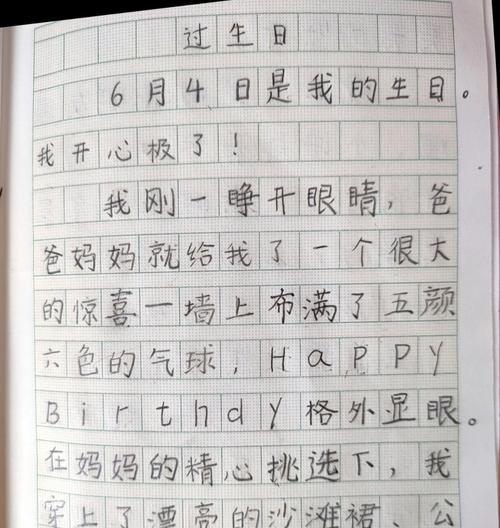 过生日
6月4日是我的生日。
我开心极了！
我刚一睁开眼睛，爸
爸妈妈就给我了一个很大
的惊喜一墙上布满了五颜
六色的气球，HaPPY
Birthday格外显眼。
在妈妈的精心挑选下，我
穿上了漂亮的沙滩裙，公